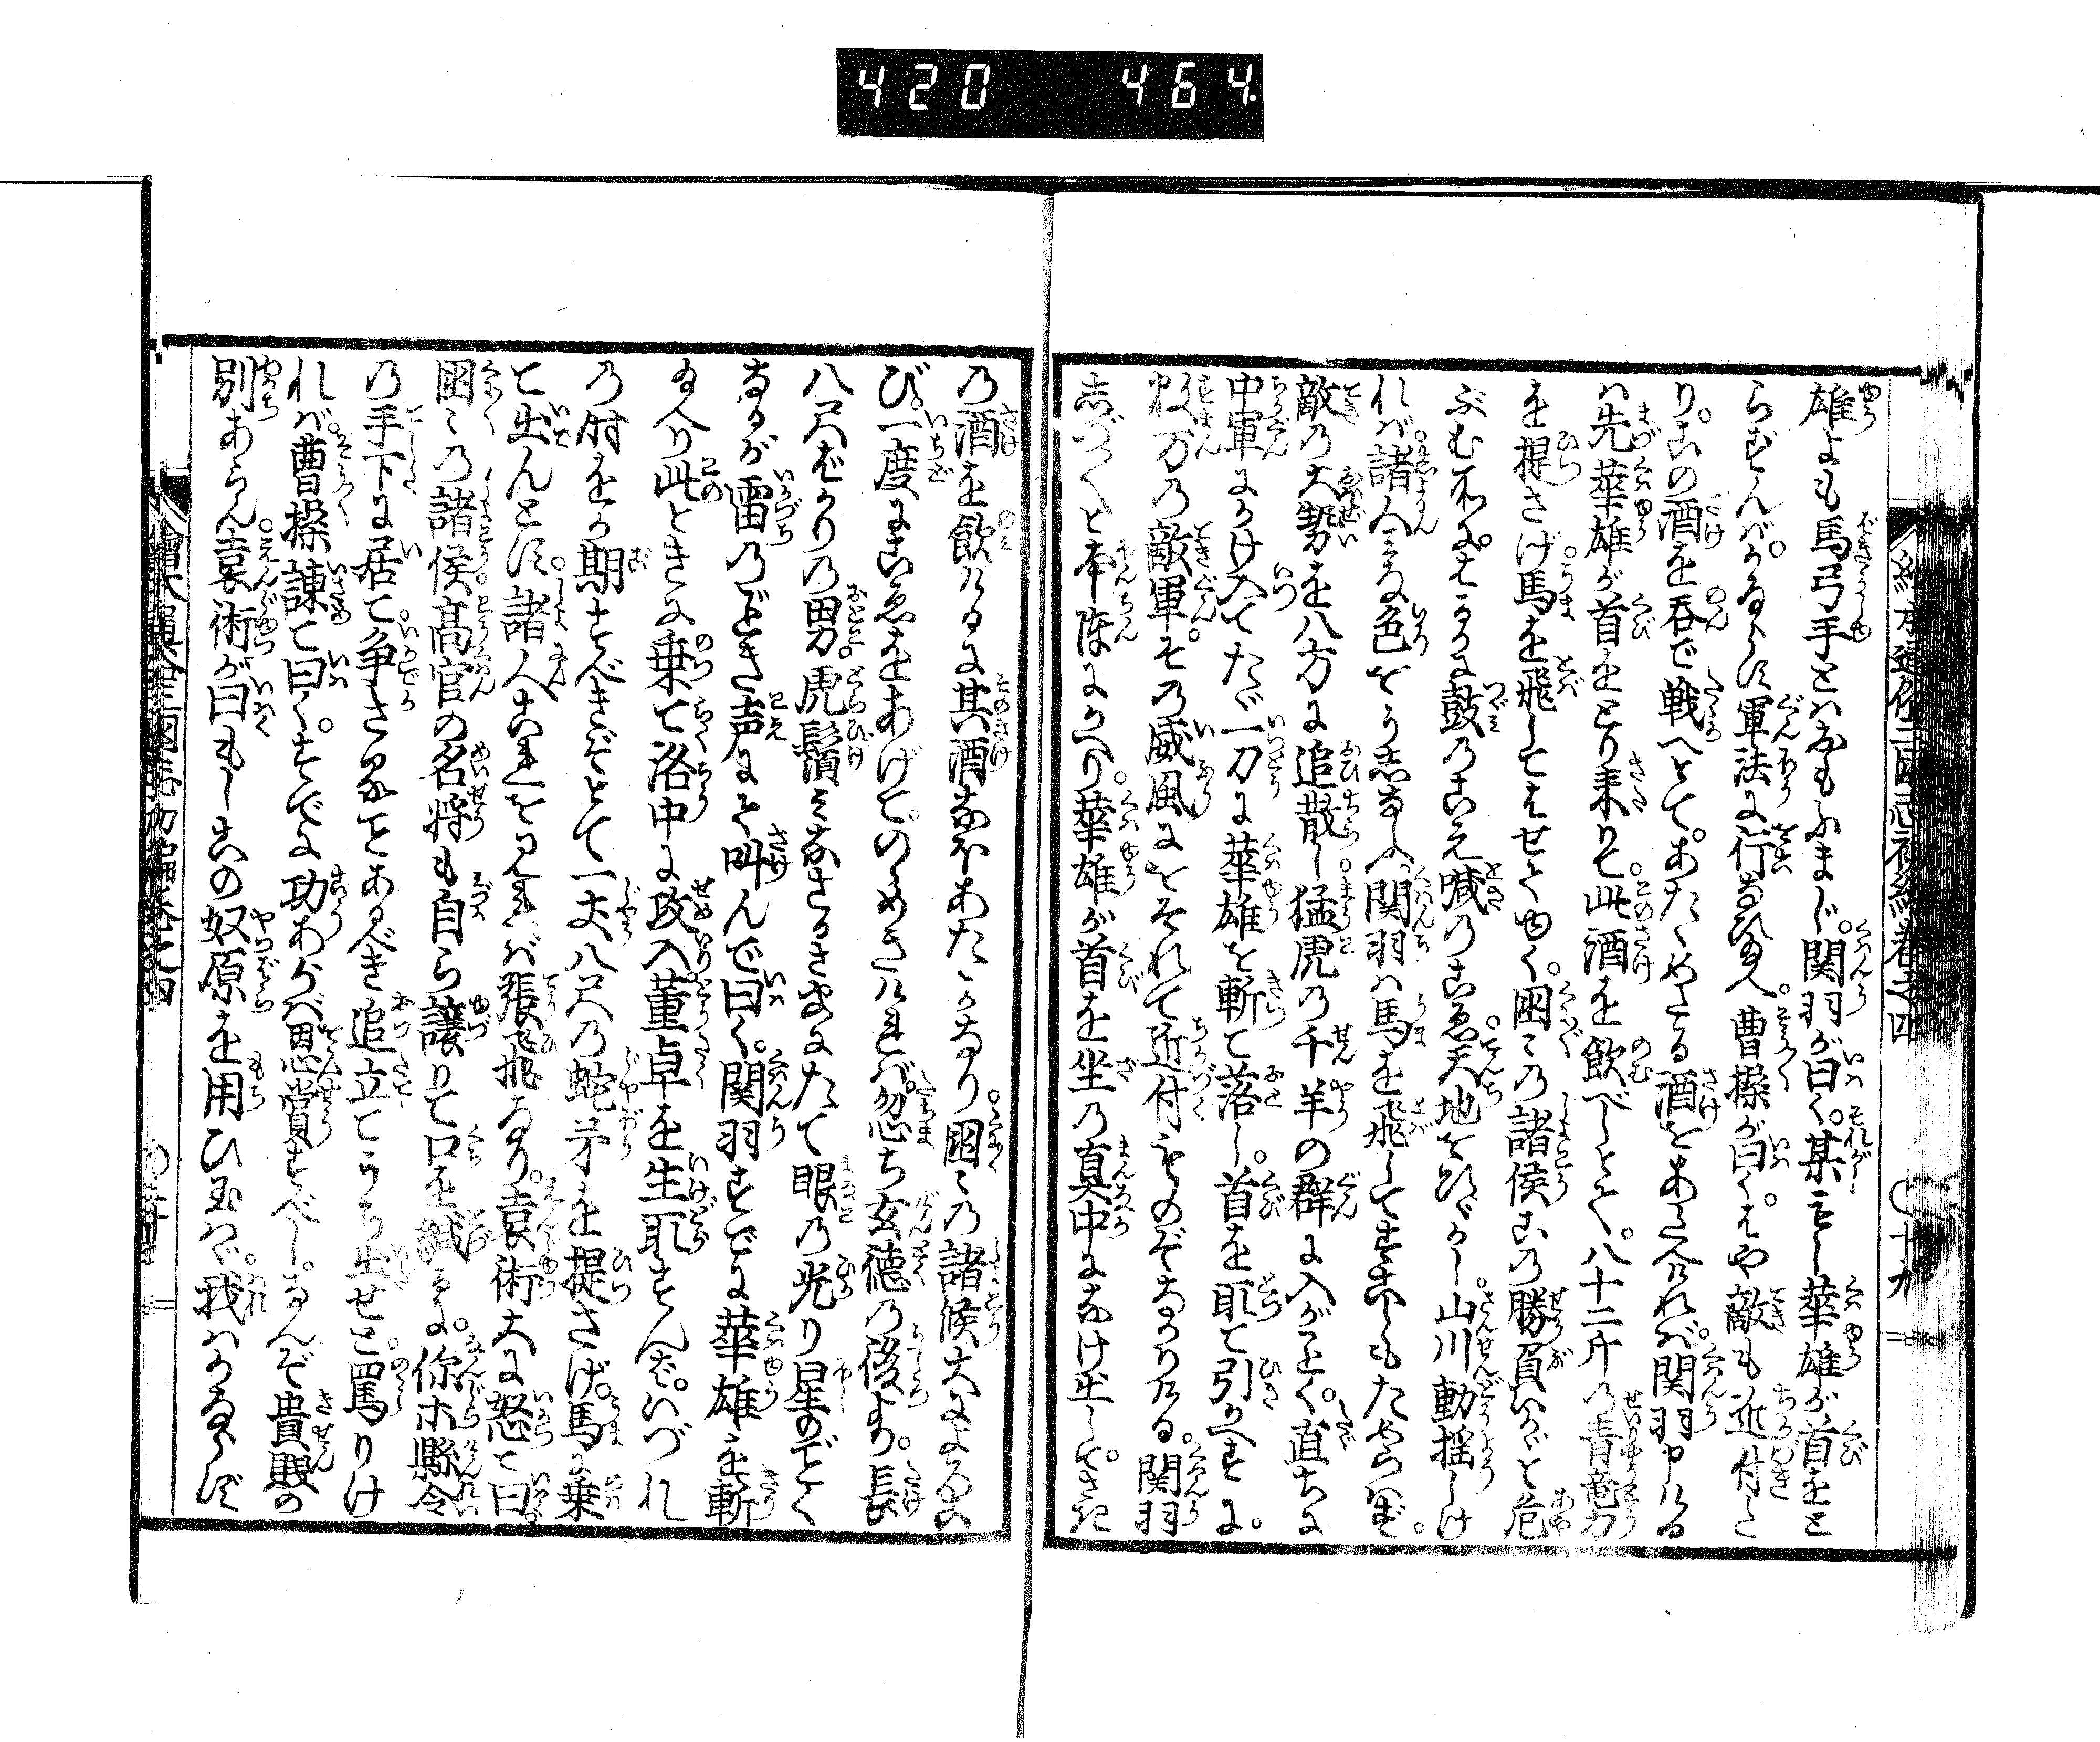 420 464.
雄よも馬弓手とハおもふまじ。関羽が曰く。某もし華雄が首をと
らずんバ。かならず軍法に行なひ給へ。曹操が曰く。はや敵も近付た
り。この酒を呑で戦へとて。あたゝめたる酒をあたへけれバ。関羽申ける
ハ先華雄が首をとり来りて。此酒を飲べしとて。八十二斤の青竜刀
を提さげ。馬を飛してはせてゆく。国々の諸侯この勝負いかゞと危
ぶむ所に。はるかに鼓のこゑ喊のこゑ。天地をひゞかし。山川動揺しけ
れバ。諸人みな色をうしなふ。関羽ハ馬を飛してすこしもためらハず。
敵の大勢を八方に追散し。猛虎の千羊の群に入がごとく。直ちに
中軍にかけ入てたゞ一刀に華雄を斬て落し。首を取て引かへすに。
数万の敵軍。その威風におそれて近付ものぞなかりける。関羽
しづ〳〵と本陣にかへり。華雄が首を坐の真中になげ出して。さき
の酒を飲けるに其酒なほあたゝかなり。国々の諸候大によろこ
び。一度にこゑをあげて。のゝめきけれバ。忽ち玄徳の後より。長
八尺ばかりの男。虎鬚さかさまにたて眼の光り星のごとく
なるが雷のごとき声にて叫んで曰く。関羽すでに華雄を斬
る入り此ときに乗て洛中に攻入。董卓を生取ずんバ。いづれ
の時をか期すべきぞとて一丈八尺の蛇矛を提さげ。馬に乗
て出んとす。諸人これを見れバ張飛なり。袁術大に怒て曰
国々の諸侯。高官の名将も自ら譲りて口を緘るに。你等縣令
の手下に居て。争さることあるべき追立てうち出せと。罵りけ
れバ。曹操諌て曰く。すでに功あらバ恩賞すべし。なんぞ貴賎の
別あらん。袁術が曰もしこの奴原を用ひ玉ハゞ。我ハかならず